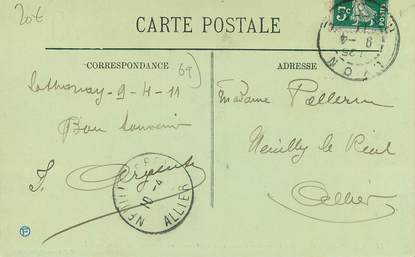 20€
CARTE POSTALE
CORRESPONDANCE
69
ADRESSE
5c
POSTES
9-4
LYON
9-4-11
Bon Souvenir
Madame Pellerin
Neuilly le Réal
Allier
10-4
ALLIER